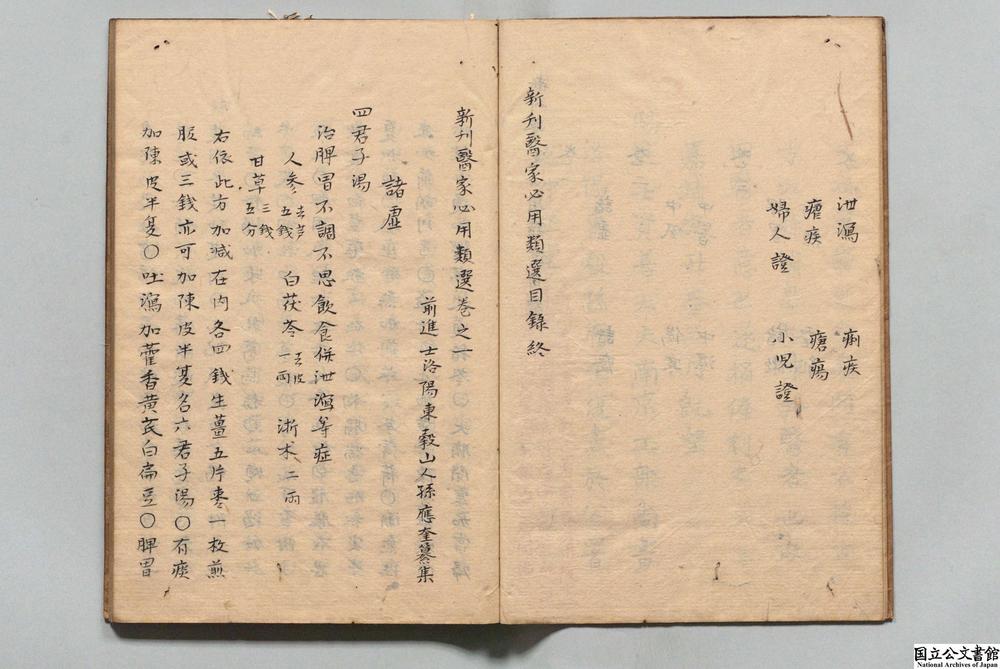 泄瀉 痢疾
瘧疾 瘡瘍
婦人證 小児證
新刋醫家必用類選目録終
新刋醫家必用類選巻之
前進士洛陽東穀山人孫應奎纂集
諸虚
四君子湯
治脾胃不調不思飲食併泄瀉等症
人参去芦五銭 白茯苓去皮一兩 浙术二兩
甘草三銭五分
右依此方加減在内各四銭生薑五片棗一枚煎
服或三銭亦可加陳皮半夏名六君子湯〇有痰
加陳皮半夏〇吐瀉加藿香黄芪白扁豆〇脾胃
国立公文書館
National Archives of Japan